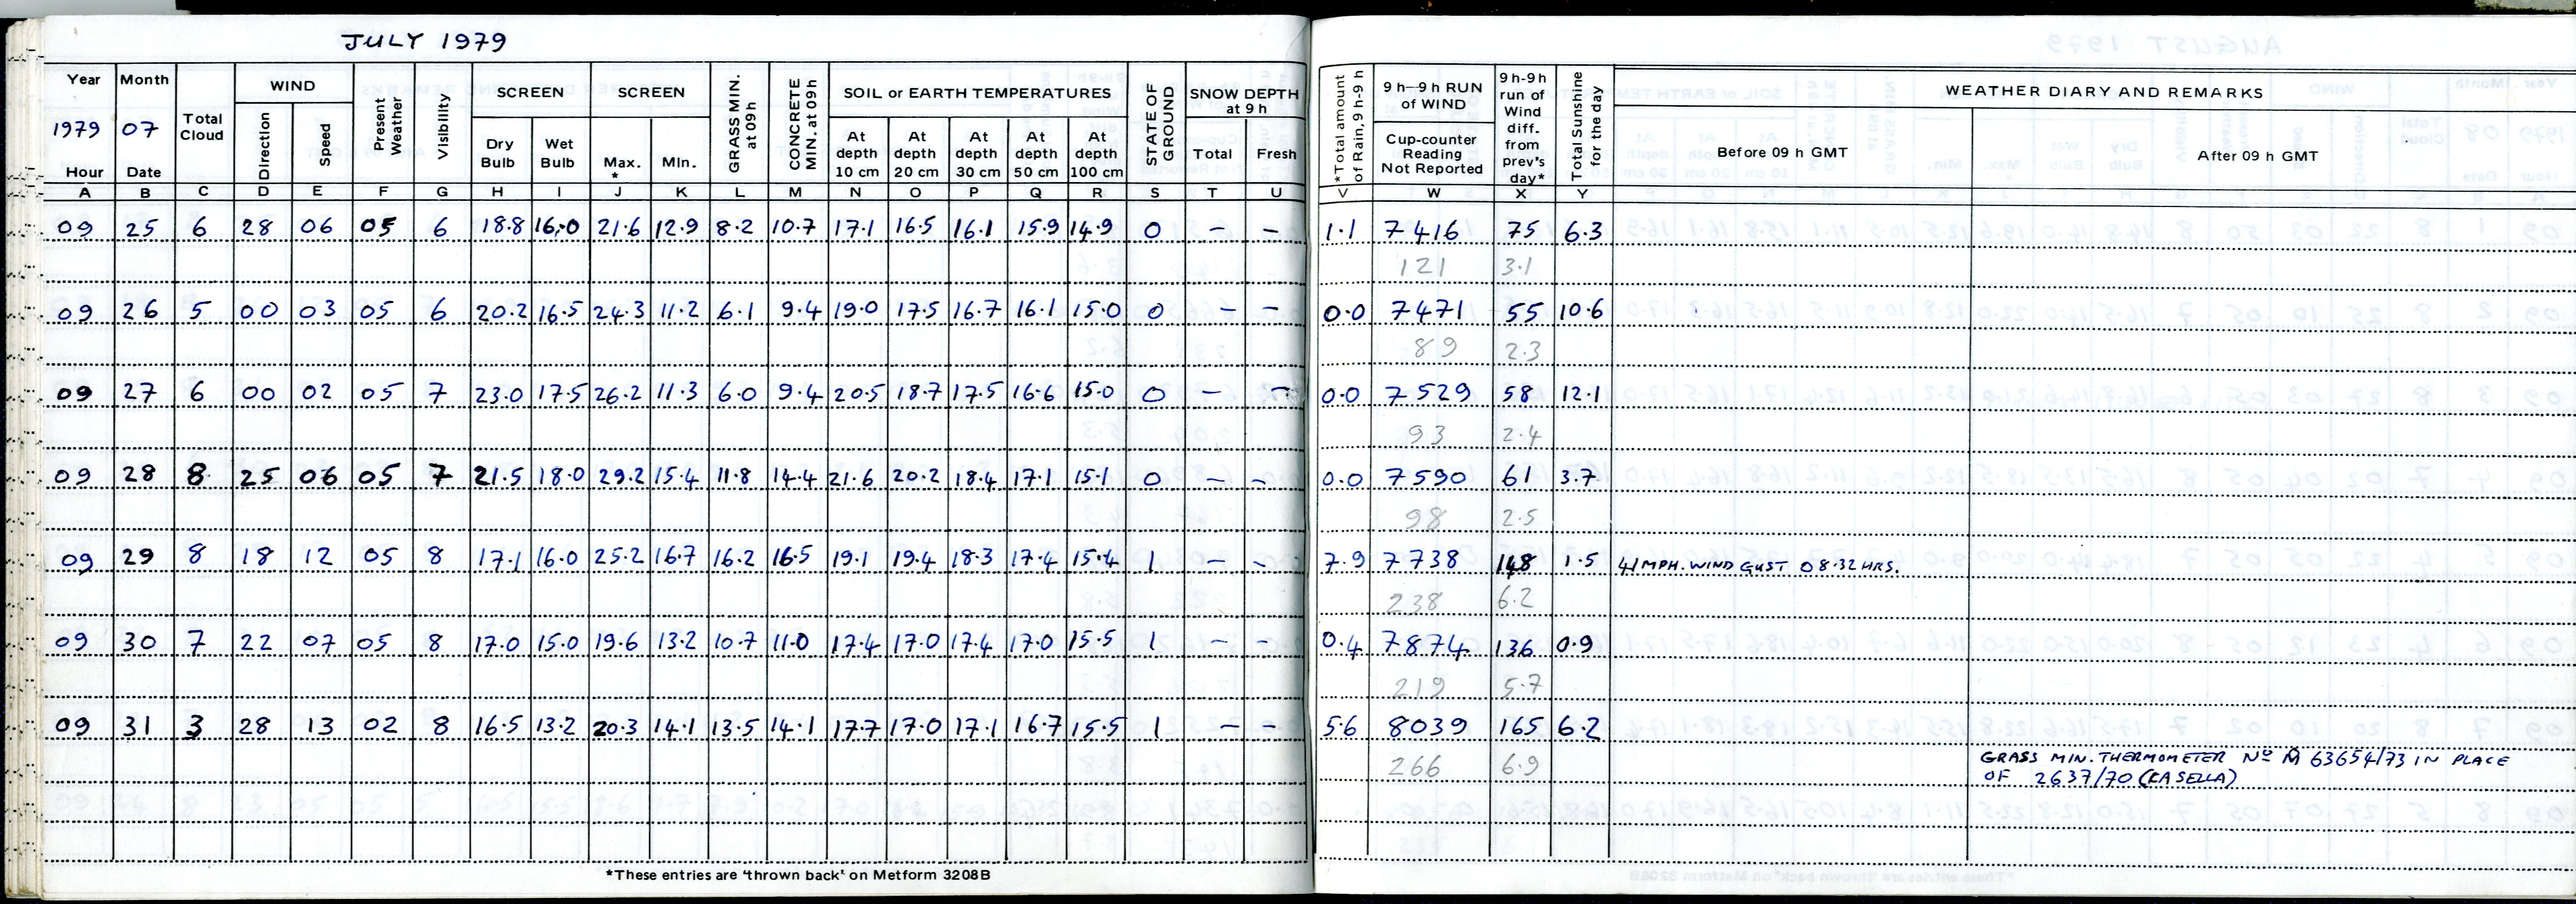 JULY 1979
Year Month Total Cloud WIND Present Weather Visibility SCREEN SCREEN GRASS MIN. at 09h CONCRETE MIN. at 09h SOIL or EARTH TEMPERATURES STATE OF GROUND SNOW DEPTH at 9 h *Total amount of Rain, 9h-9h 9 h—9 h RUN of WIND 9 h-9 h run of Wind diff. from prev's day* Total Sunshine for the day WEATHER DIARY AND REMARKS
1979 07 Direction Speed Dry Bulb Wet Bulb Max. * Min. At depth 10 cm At depth 20 cm At depth 30 cm At depth 50 cm At depth 100 cm Total Fresh Cup-counter Reading Not Reported Before 09 h GMT After 09 h GMT
Hour Date
A B C D E F G H I J K L M N O P Q R S T U V W X Y
09 25 6 28 06 05 6 18.8 16.0 21.6 12.9 8.2 10.7 17.1 16.5 16.1 15.9 14.9 0 – – 1.1 7416 75 6.3
121 3.1
09 26 5 00 03 05 6 20.2 16.5 24.3 11.2 6.1 9.4 19.0 17.5 16.7 16.1 15.0 0 – – 0.0 7471 55 10.6
89 2.3
09 27 6 00 02 05 7 23.0 17.5 26.2 11.3 6.0 9.4 20.5 18.7 17.5 16.6 15.0 0 – – 0.0 7529 58 12.1
93 2.4
09 28 8 25 06 05 7 21.5 18.0 29.2 15.4 11.8 14.4 21.6 20.2 18.4 17.1 15.1 0 – – 0.0 7590 61 3.7
98 2.5
09 29 8 18 12 05 8 17.1 16.0 25.2 16.7 16.2 16.5 19.1 19.4 18.3 17.4 15.4 1 – – 7.9 7738 148 1.5 41 MPH. WIND GUST 08.32 HRS.
238 6.2
09 30 7 22 07 05 8 17.0 15.0 19.6 13.2 10.7 11.0 17.4 17.0 17.4 17.0 15.5 1 – – 0.4 7874 136 0.9
219 5.7
09 31 3 28 13 02 8 16.5 13.2 20.3 14.1 13.5 14.1 17.7 17.0 17.1 16.7 15.5 1 – – 5.6 8039 165 6.2
266 6.9 GRASS MIN. THERMOMETER Nº M 63654/73 IN PLACE
OF 2637/70 (CASELLA)
*These entries are 'thrown back' on Metform 3208B